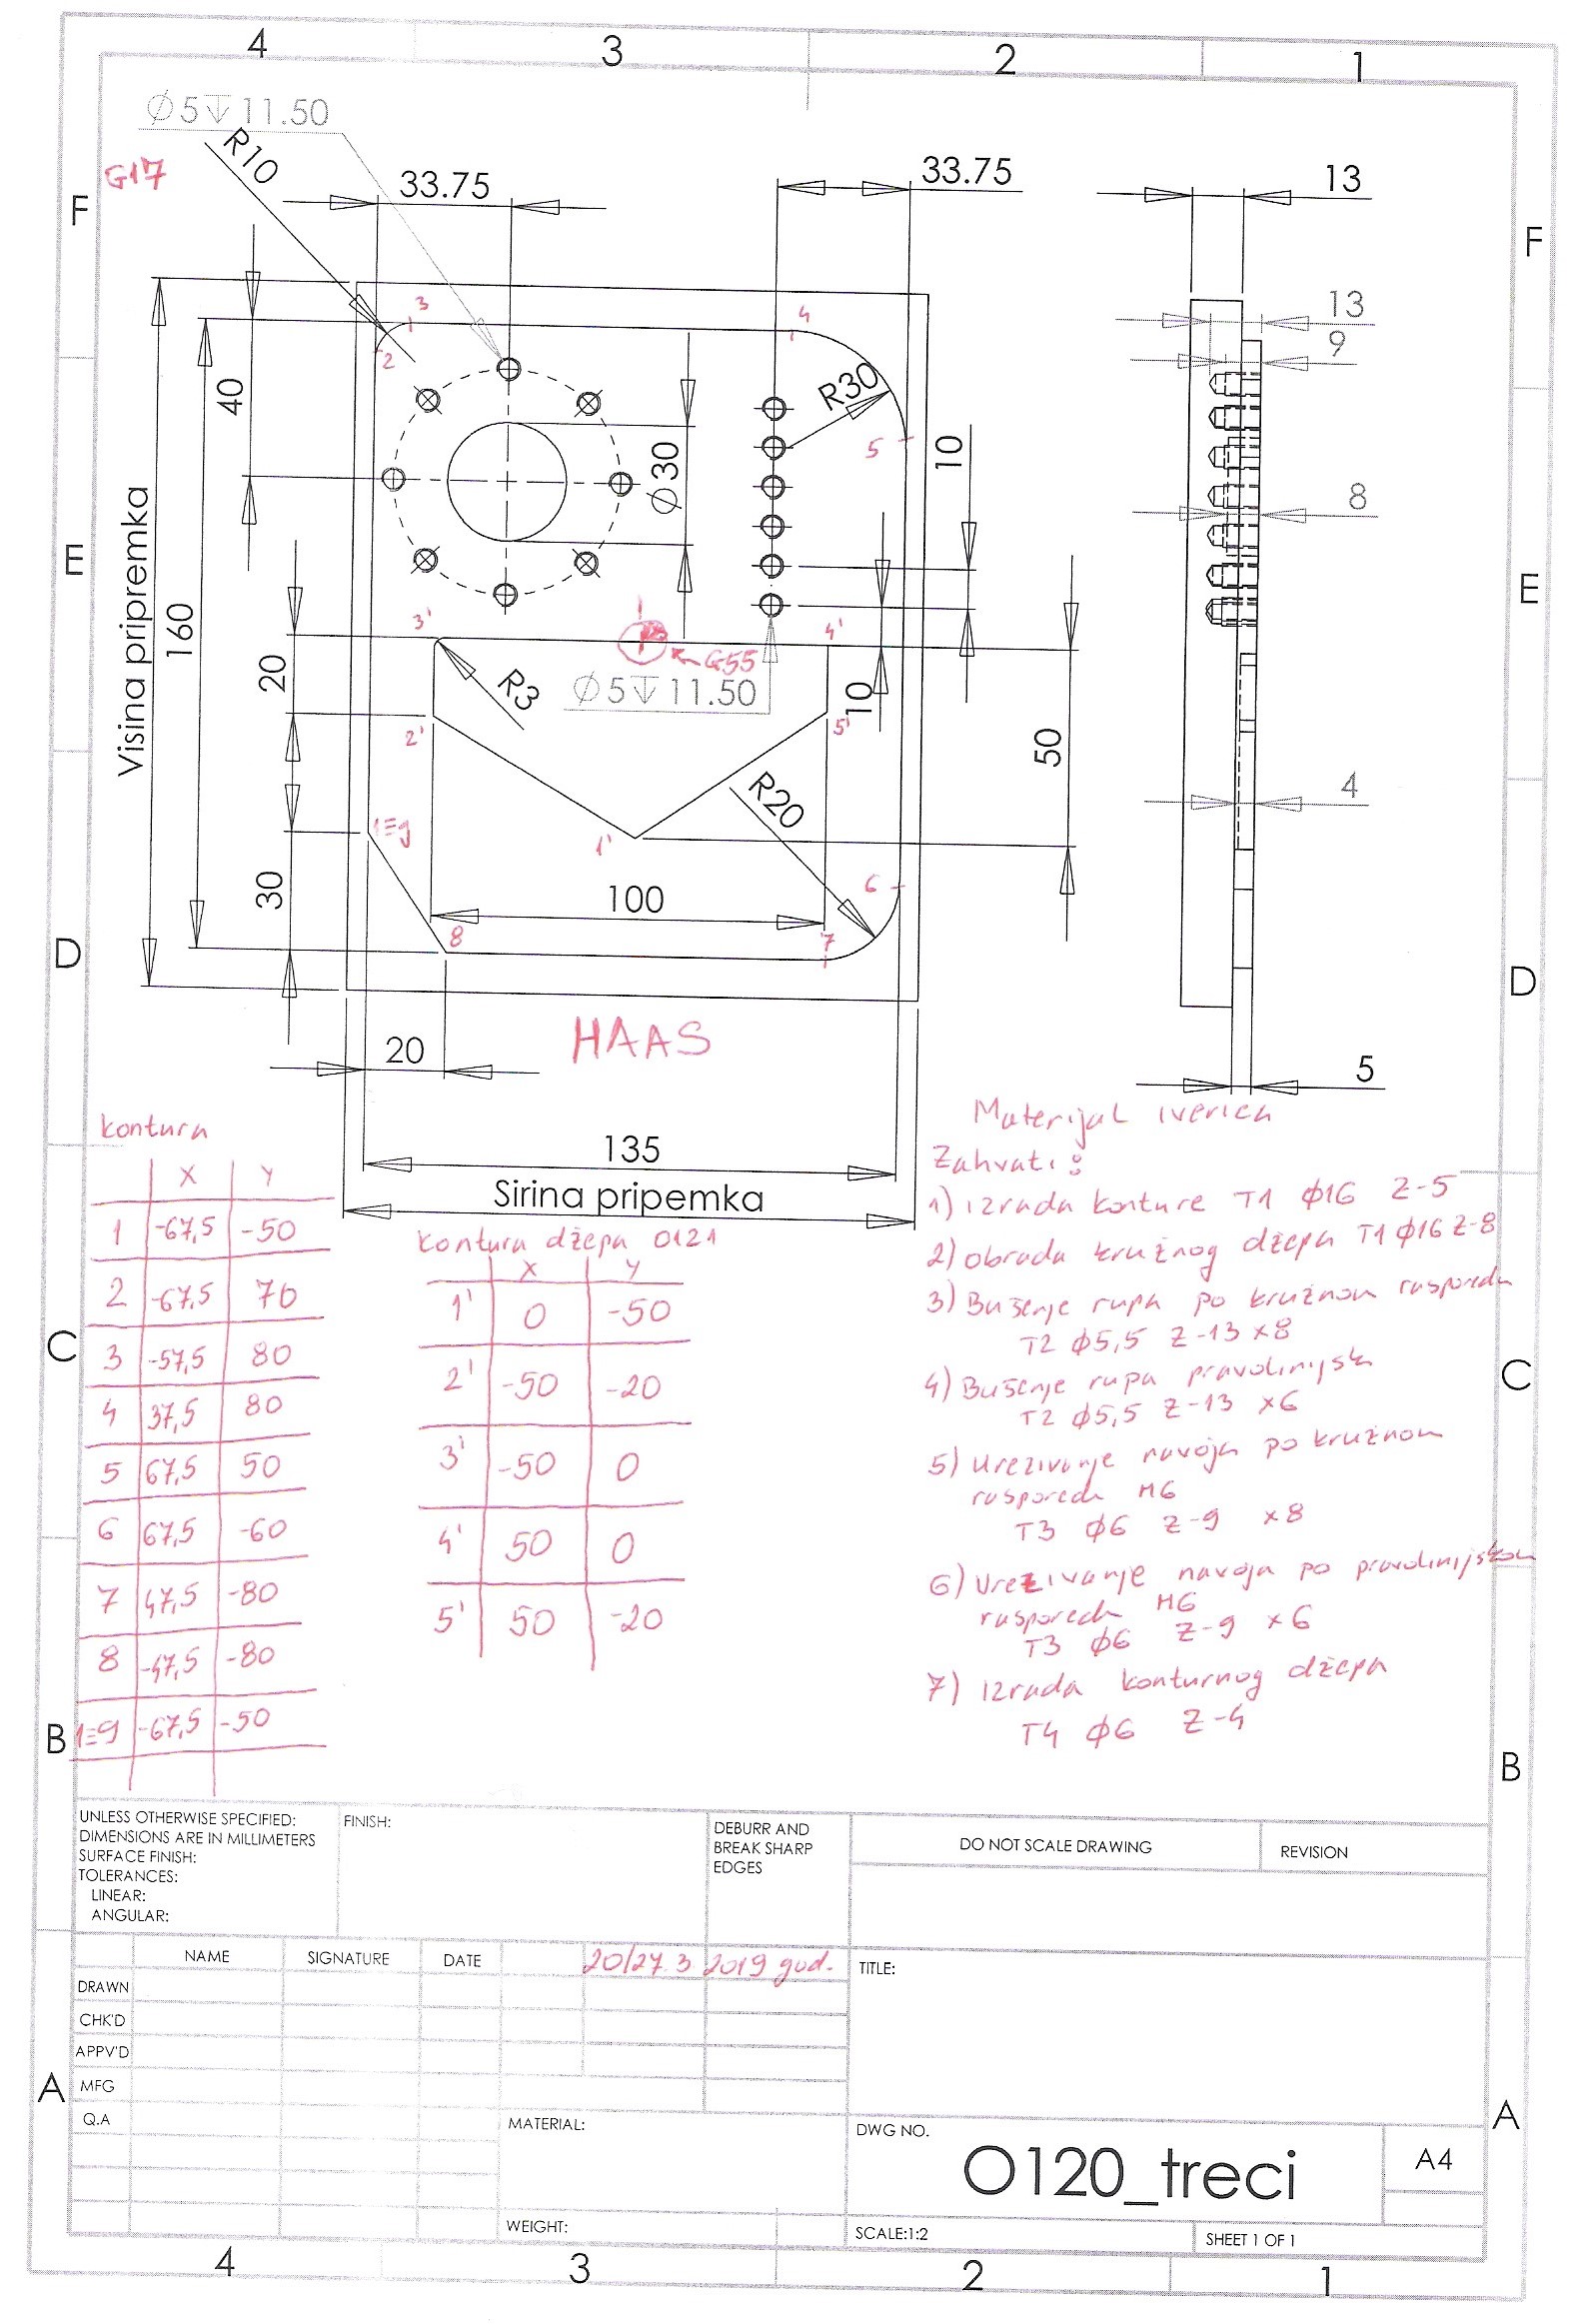 4
3
2
1
F
E
D
C
B
A
F
E
D
C
B
A
∅5↧11.50
R10
G17
33.75
33.75
13
13
9
8
4
5
3
2
4
5
40
R30
∅30
10
Visina pripremka
160
20
30
3'
4'
G55
R3
∅5↧11.50
10
2'
5'
50
R20
1≡9
1'
6
100
8
7
20
HAAS
135
Sirina pripemka
kontura
X Y
1 -67,5 -50
2 -67,5 70
3 -57,5 80
4 37,5 80
5 67,5 50
6 67,5 -60
7 47,5 -80
8 -47,5 -80
1≡9 -67,5 -50
kontura džepa 0121
X Y
1' 0 -50
2' -50 -20
3' -50 0
4' 50 0
5' 50 -20
Materijal iverica
Zahvati:
1) izrada konture T1 ϕ16 Z-5
2) obrada kružnog džepa T1 ϕ16 Z-8
3) Bušenje rupa po kružnom rasporedu
T2 ϕ5,5 Z-13 x8
4) Bušenje rupa pravolinijsk
T2 ϕ5,5 Z-13 x6
5) Urezivanje navoja po kružnom
rasporedu M6
T3 ϕ6 Z-9 x8
6) Urezivanje navoja po pravolinijskom
rasporedu M6
T3 ϕ6 Z-9 x6
7) izrada konturnog džepa
T4 ϕ6 Z-4
UNLESS OTHERWISE SPECIFIED:
DIMENSIONS ARE IN MILLIMETERS
SURFACE FINISH:
TOLERANCES:
LINEAR:
ANGULAR:
FINISH:
DEBURR AND
BREAK SHARP
EDGES
DO NOT SCALE DRAWING
REVISION
NAME
SIGNATURE
DATE
20/27.3 2019 god.
TITLE:
DRAWN
CHK'D
APPV'D
MFG
Q.A
MATERIAL:
DWG NO.
O120_treci
A4
WEIGHT:
SCALE:1:2
SHEET 1 OF 1
4
3
2
1